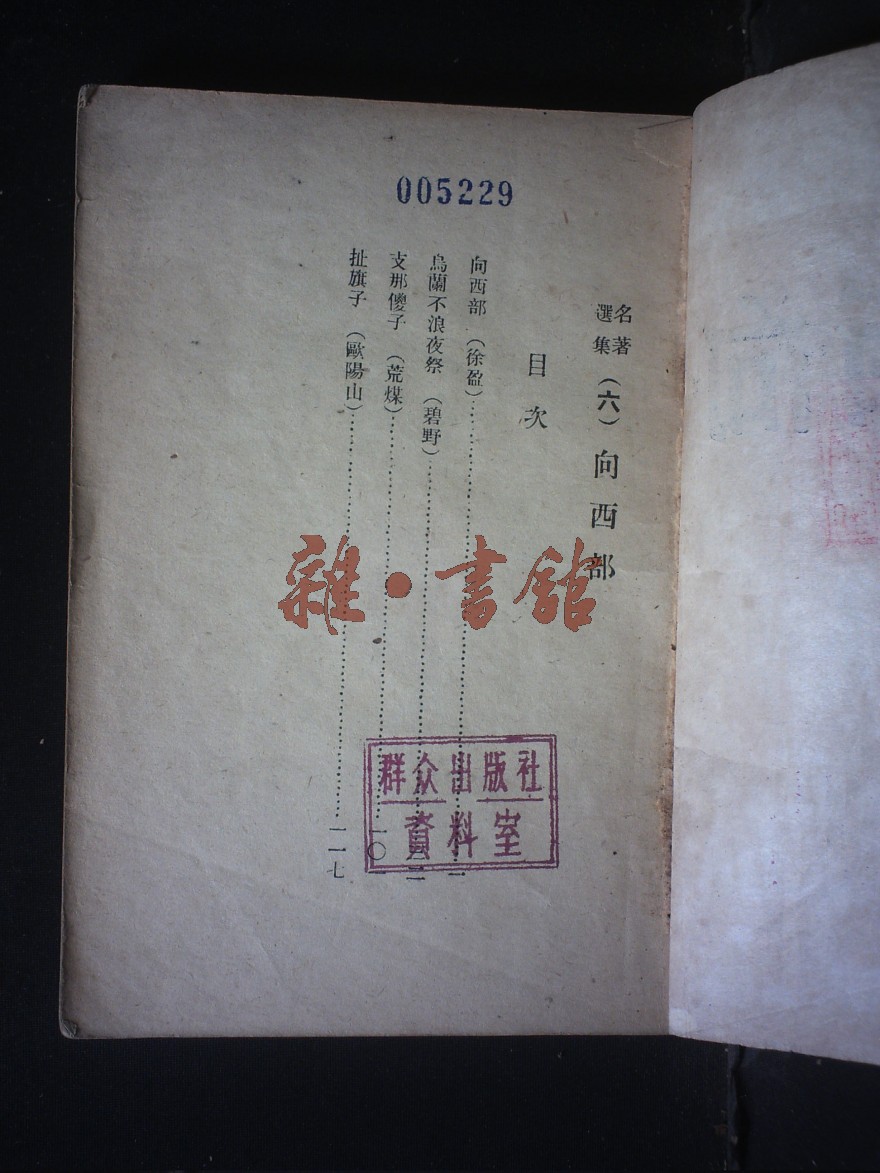 005229
名著選集（六）向西部
目次
向西部（徐盈）…………一
烏蘭不浪夜祭（碧野）…………六二
支那傻子（荒煤）…………一〇一
扯旗子（歐陽山）…………一一七
雜·書館
群众出版社
資料室